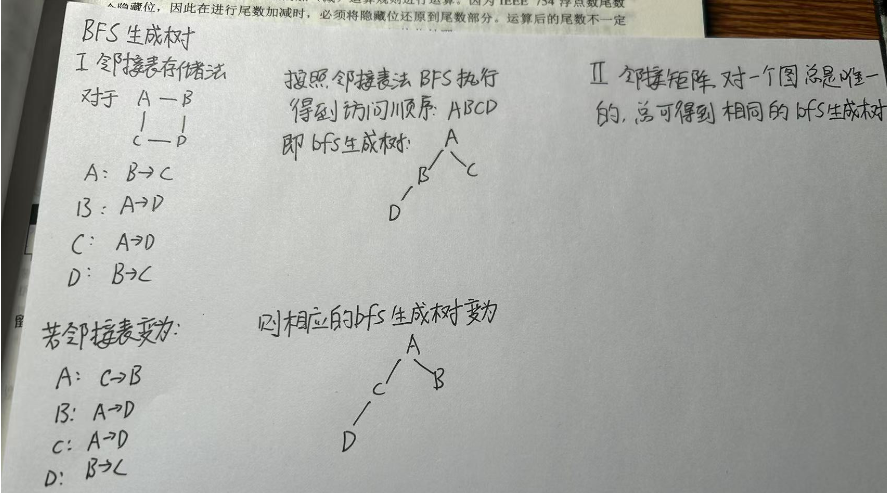 个隐藏位，因此在进行尾数加减时，必须将隐藏位还原到尾数部分。运算后的尾数不一定
BFS 生成树
I 邻接表存储法
对于 A — B
C — D
A: B→C
B: A→D
C: A→D
D: B→C
按照邻接表法 BFS 执行
得到访问顺序: ABCD
即 bfs 生成树:
A
B C
D
II 邻接矩阵, 对一个图总是唯一
的, 总可得到相同的 bfs 生成树
若邻接表变为:
A: C→B
B: A→D
C: A→D
D: B→C
则相应的 bfs 生成树变为
A
C B
D